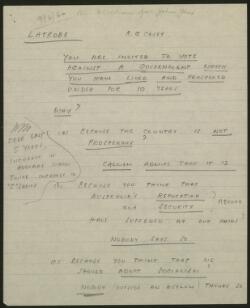 LATROBE R.G. CASEY
YOU ARE INVITED TO VOTE
AGAINST A GOVERNMENT WHICH
YOU HAVE LIVED AND PROSPERED
UNDER FOR 10 YEARS
WHY?
(a) BECAUSE THE COUNTRY IS NOT
PROSPEROUS?
CALWELL ADMITS THAT IT IS
(b) BECAUSE YOU THINK THAT
AUSTRALIA'S REPUTATION
OR SECURITY ABROAD
HAVE SUFFERED AT OUR HANDS?
NOBODY SAYS SO
BECAUSE YOU THINK THAT WE
SHOULD ADOPT SOCIALISM?
NOBODY OUTSIDE AN ASYLUM THINKS SO
5 YEARS,
INCREASE IN